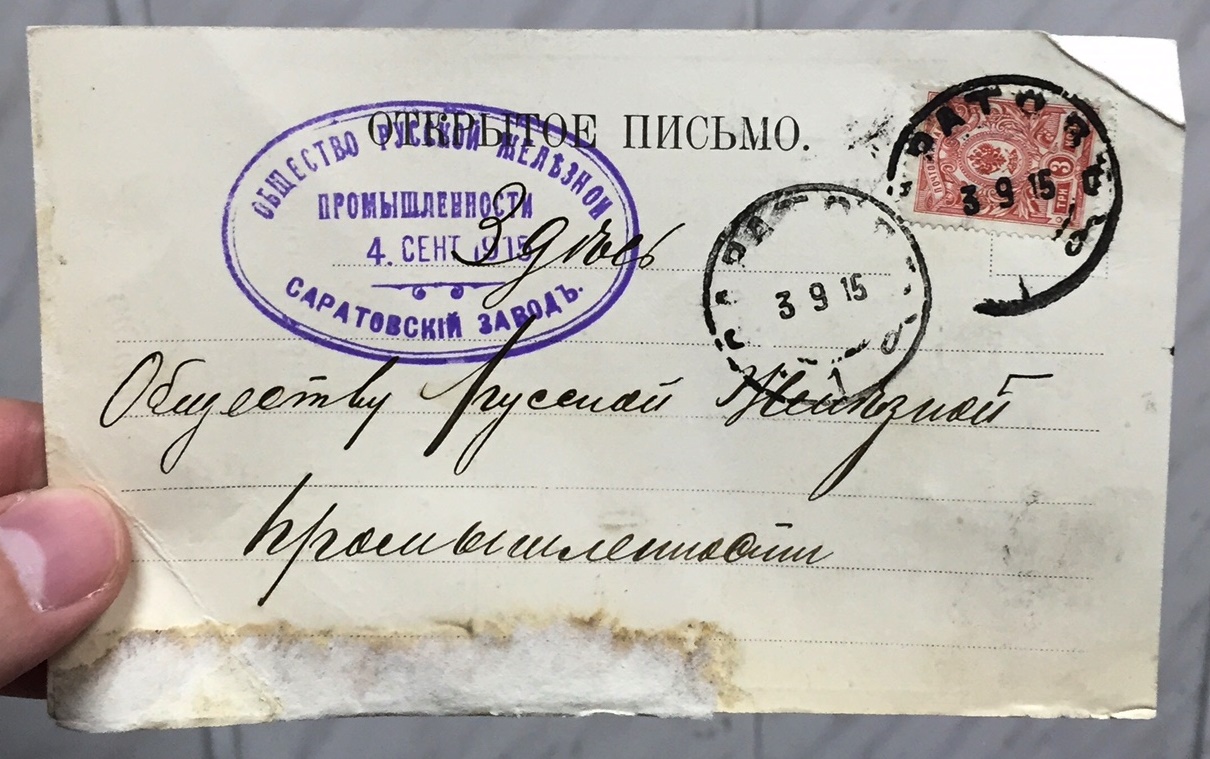 ОТКРЫТОЕ ПИСЬМО.
ОБЩЕСТВО РУССКОЙ ЖЕЛѢЗНОЙ
ПРОМЫШЛЕННОСТИ
4. СЕНТ. 1915
САРАТОВСКІЙ ЗАВОДЪ.
САРАТОВ
3 9 15
ТРИ
3
САРАТОВ
3 9 15
Здѣсь
Обществу Русской Желѣзной
промышленности